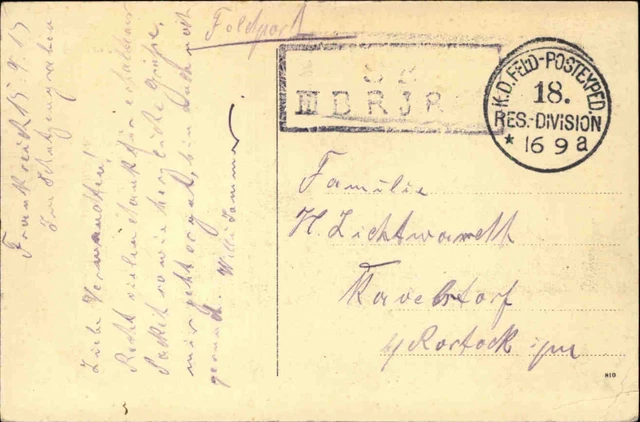 Feldpost
S B
III B R J R
K.D. FELD-POSTEXPED.
18.
RES.-DIVISION
* 16 9 a
Familie
H Lichtwardt
Kavelstorf
b/ Rostock i/m
810
Frankreich 15.9.15
Im Schützengraben
Liebe Verwandten!
Recht vielen Dank für erhaltenes
Packet sowie herzliche Grüße,
mir geht es gut, bin auch noch
gesund. Willi Dammer